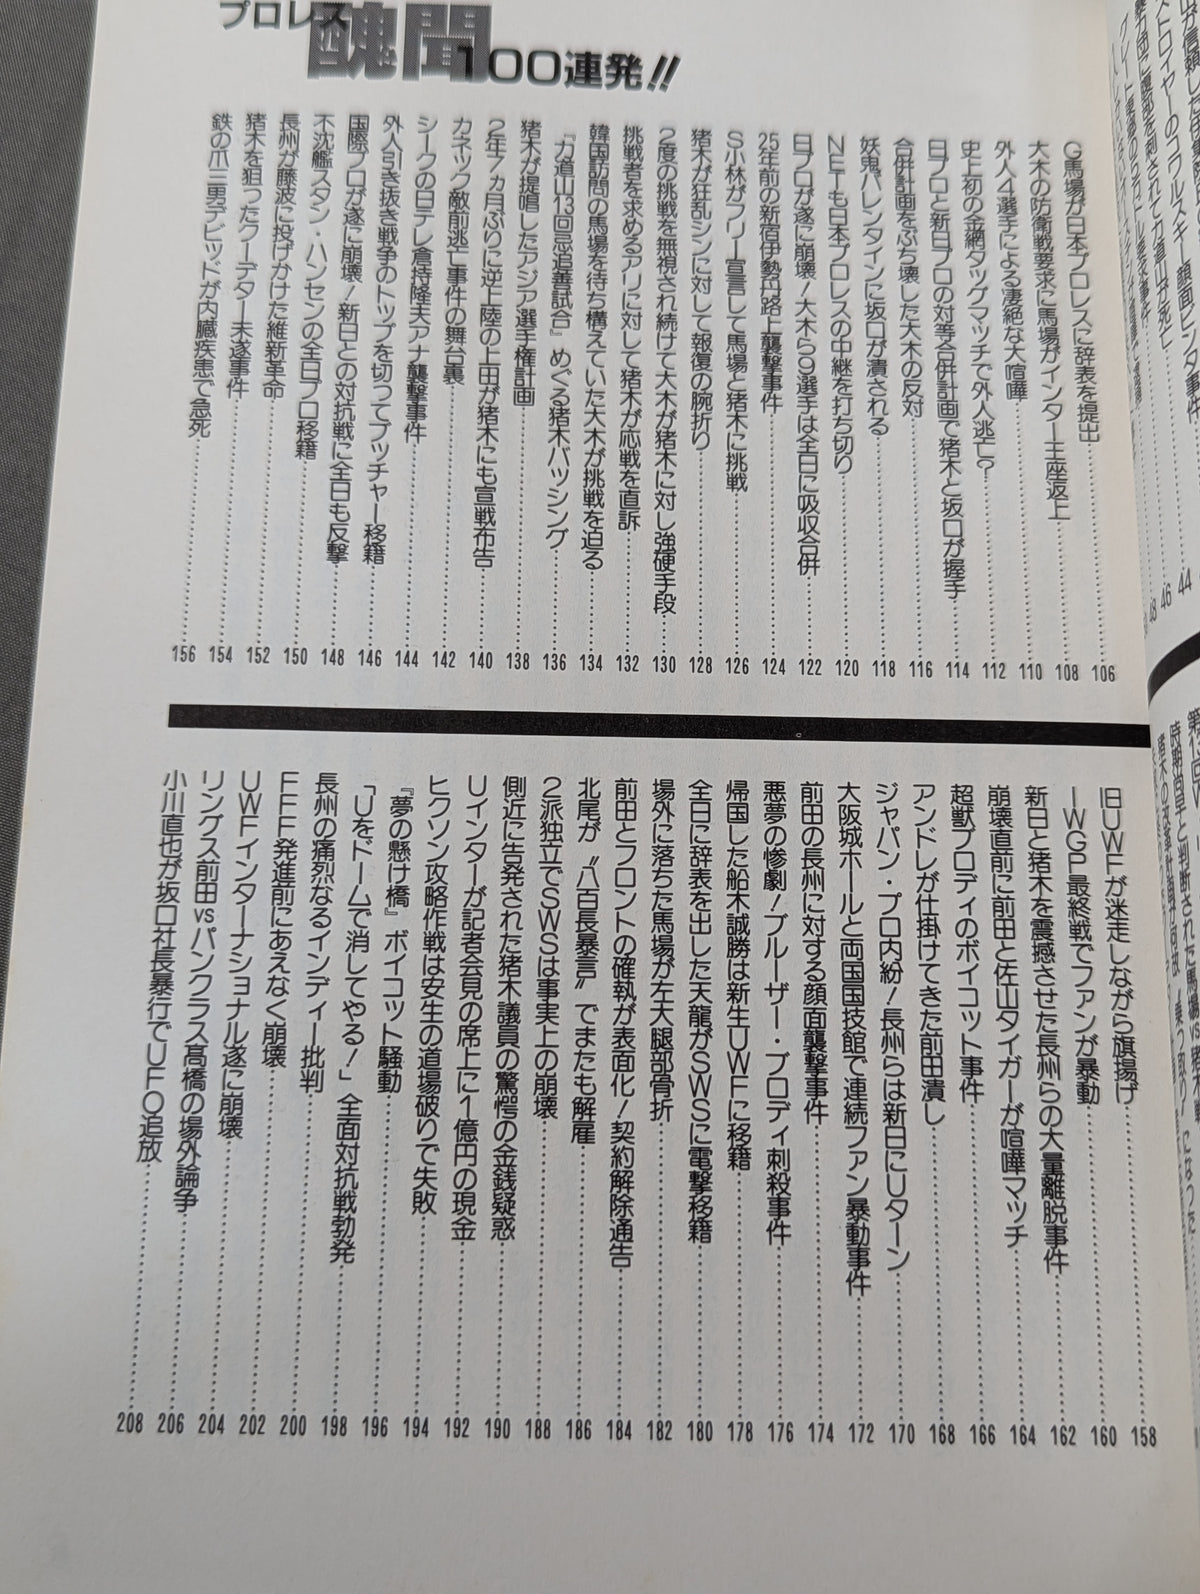 プロレス
醜聞
100連発!!
G馬場が日本プロレスに辞表を提出……106
大木の防衛戦要求に馬場がインター王座返上……108
外人4選手による凄絶な大喧嘩……110
史上初の金網タッグマッチで外人逃亡？……112
日プロと新日プロの対等合併計画で猪木と坂口が握手……114
合併計画をぶち壊した大木の反対……116
妖鬼バレンタインに坂口が潰される……118
NETも日本プロレスの中継を打ち切り……120
日プロが遂に崩壊！大木ら9選手は全日に吸収合併……122
25年前の新宿伊勢丹路上襲撃事件……124
S小林がフリー宣言して馬場と猪木に挑戦……126
猪木が狂乱シンに対して報復の腕折り……128
2度の挑戦を無視され続けて大木が猪木に対し強硬手段……130
挑戦者を求めるアリに対して猪木が応戦を直訴……132
韓国訪問の馬場を待ち構えていた大木が挑戦を迫る……134
『力道山13回忌追善試合』めぐる猪木バッシング……136
猪木が提唱したアジア選手権計画……138
2年7ヵ月ぶりに逆上陸の上田が猪木にも宣戦布告……140
カネック敵前逃亡事件の舞台裏……142
シークの日テレ倉持隆夫アナ襲撃事件……144
外人引き抜き戦争のトップを切ってブッチャー移籍……146
国際プロが遂に崩壊！新日との対抗戦に全日も反撃……148
不沈艦スタン・ハンセンの全日プロ移籍……150
長州が藤波に投げかけた維新革命……152
猪木を狙ったクーデター未遂事件……154
鉄の爪三男デビッドが内臓疾患で急死……156
旧UWFが迷走しながら旗揚げ……158
IWGP最終戦でファンが暴動……160
新日と猪木を震撼させた長州らの大量離脱事件……162
崩壊直前に前田と佐山タイガーが喧嘩マッチ……164
超獣ブロディのボイコット事件……166
アンドレが仕掛けてきた前田潰し……168
ジャパン・プロ内紛！長州らは新日にUターン……170
大阪城ホールと両国国技館で連続ファン暴動事件……172
前田の長州に対する顔面襲撃事件……174
悪夢の惨劇！ブルーザー・ブロディ刺殺事件……176
帰国した船木誠勝は新生UWFに移籍……178
全日に辞表を出した天龍がSWSに電撃移籍……180
場外に落ちた馬場が左大腿部骨折……182
前田とフロントの確執が表面化！契約解除通告……184
北尾が〝八百長暴言〟でまたも解雇……186
2派独立でSWSは事実上の崩壊……188
側近に告発された猪木議員の驚愕の金銭疑惑……190
Uインターが記者会見の席上に1億円の現金……192
ヒクソン攻略作戦は安生の道場破りで失敗……194
『夢の懸け橋』ボイコット騒動……196
「Uをドームで消してやる！」全面対抗戦勃発……198
長州の痛烈なるインディー批判……200
FFF発進前にあえなく崩壊……202
UWFインターナショナル遂に崩壊……204
リングス前田vsパンクラス高橋の場外論争……206
小川直也が坂口社長暴行でUFO追放……208
44
46
48